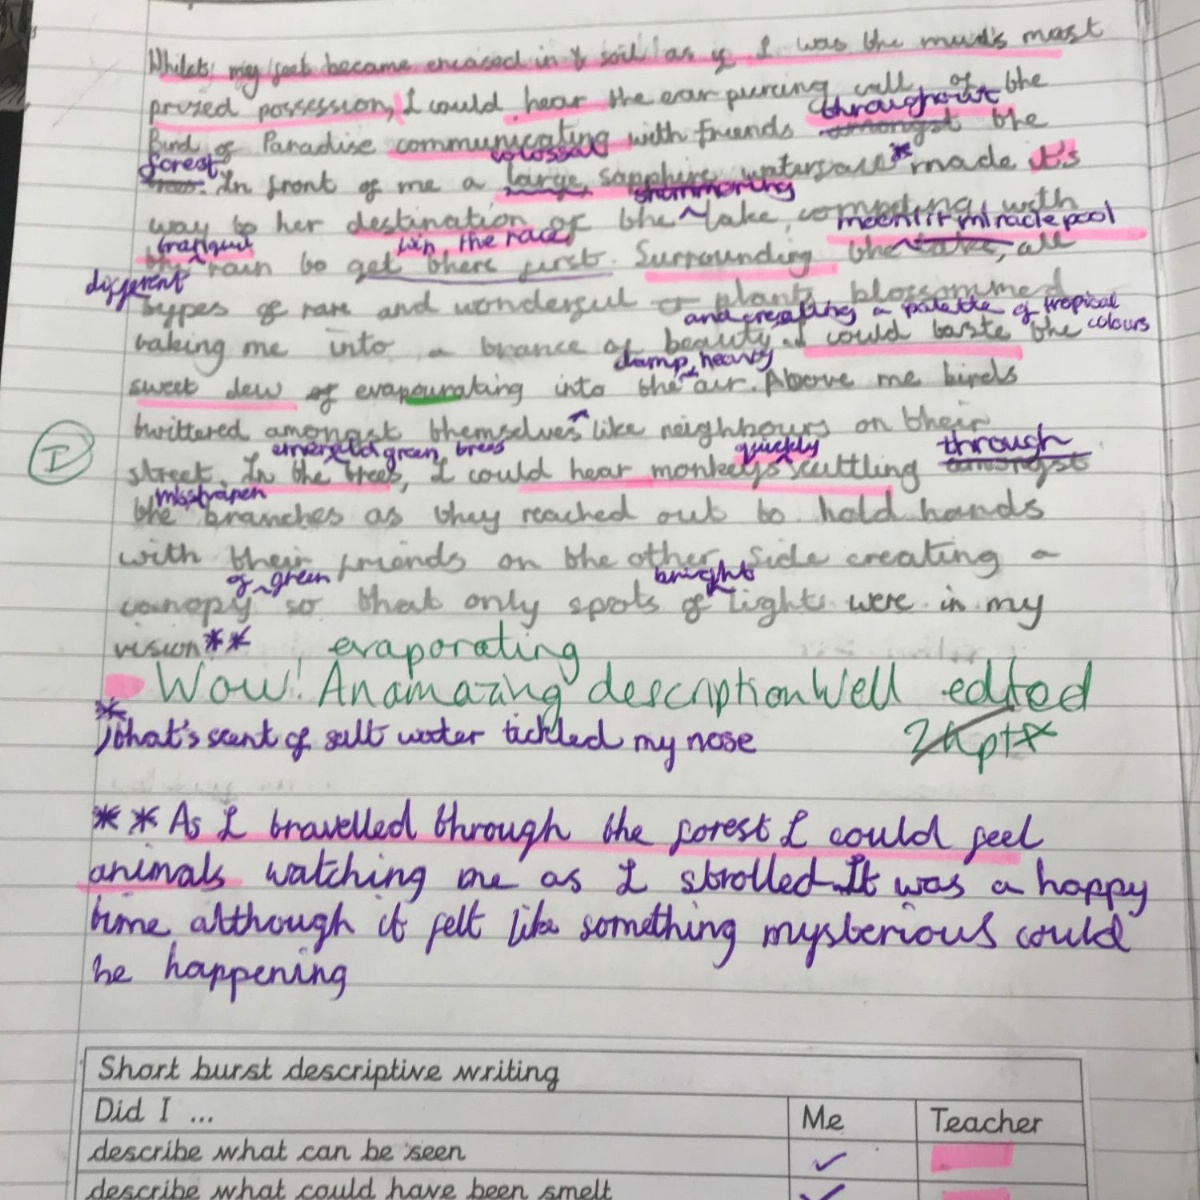 Whilst my feet became encased in soil as if I was the mud's most
prized possession, I could hear the ear piercing call of the
throughout
Bird of Paradise communicating with friends amongst the
forest colossal *
trees. In front of me a large, sapphire waterfall made it's
shimmering
way to her destination of the lake, competing with
tranquil win the race moonlit miracle pool
the rain to get there first. Surrounding the lake, all
different
types of rare and wonderful plants blossommed
and creating a palette of tropical colours
taking me into a trance of beauty. I could taste the
damp, heavy
sweet dew of evapourating into the air. Above me birds
twittered amongst themselves like neighbours on their
emerald green trees quickly through
street. In the trees, I could hear monkeys scuttling amongst
misshapen
the branches as they reached out to hold hands
with their friends on the other side creating a
of green bright
canopy so that only spots of lights were in my
vision**
evaporating
Wow! An amazing description Well edited
*
, that's scent of salt water tickled my nose
2hpts
I
** As I travelled through the forest I could feel
animals watching me as I strolled. It was a happy
time although it felt like something mysterious could
be happening
Short burst descriptive writing
Did I ... Me Teacher
describe what can be seen ✓
describe what could have been smelt ✓